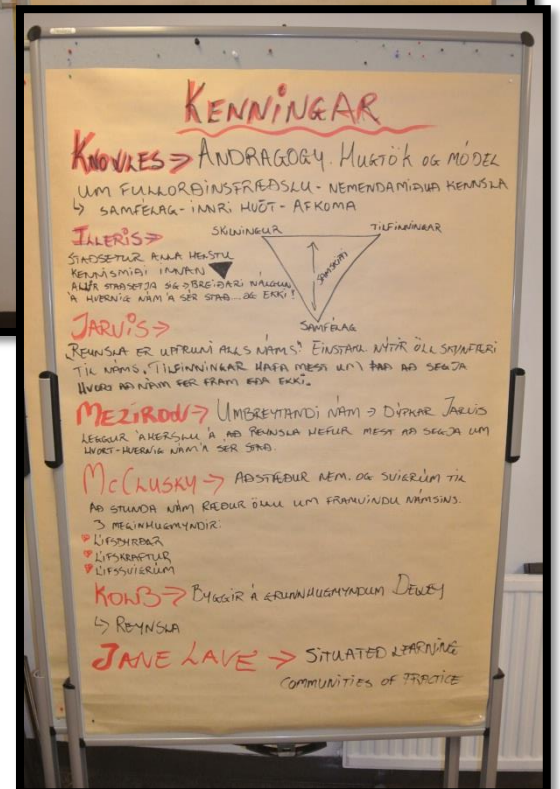 KENNINGAR
KNOWLES → ANDRAGOGY. HUGTÖK OG MÓDEL
UM FULLORÐINSFRÆÐSLU - NEMENDAMIÐUÐ KENNSLA
↳ SAMFÉLAG - INNRI HVÖT - AFKOMA
ILLERIS →
STAÐSETUR ALLA HELSTU
KENNISMIÐI INNAN ▼
ALLIR STAÐSETJA SIG → BREIÐARI NÁLGUN
Á HVERNIG NÁM Á SÉR STAÐ... OG EKKI!
SKILNINGUR TILFINNINGAR
SAMSKIPTI
SAMFÉLAG
JARVIS →
REYNSLA ER UPPRUNI ALLS NÁMS. EINSTAKL NÝTIR ÖLL SKYNFÆRI
TIL NÁMS. TILFINNINGAR HAFA MEST UM ÞAÐ AÐ SEGJA
HVORT AÐ NÁM FER FRAM EÐA EKKI.
MEZIROW → UMBREYTANDI NÁM → DÝPKAR JARVIS
LEGGUR ÁHERSLU Á AÐ REYNSLA HEFUR MEST AÐ SEGJA UM
HVORT-HVERNIG NÁM Á SÉR STAÐ.
McCLUSKY → AÐSTÆÐUR NEM. OG SVIGRÚM TIL
AÐ STUNDA NÁM RÆÐUR ÖLLU UM FRAMVINDU NÁMSINS.
3 MEGINHUGMYNDIR:
LÍFSBYRÐAR
LÍFSKRAFTUR
LÍFSSVIGRÚM
KOLB → BYGGIR Á GRUNNHUGMYNDUM DEWEY
↳ REYNSLA
JANE LAVE → SITUATED LEARNING
COMMUNITIES OF PRACTICE